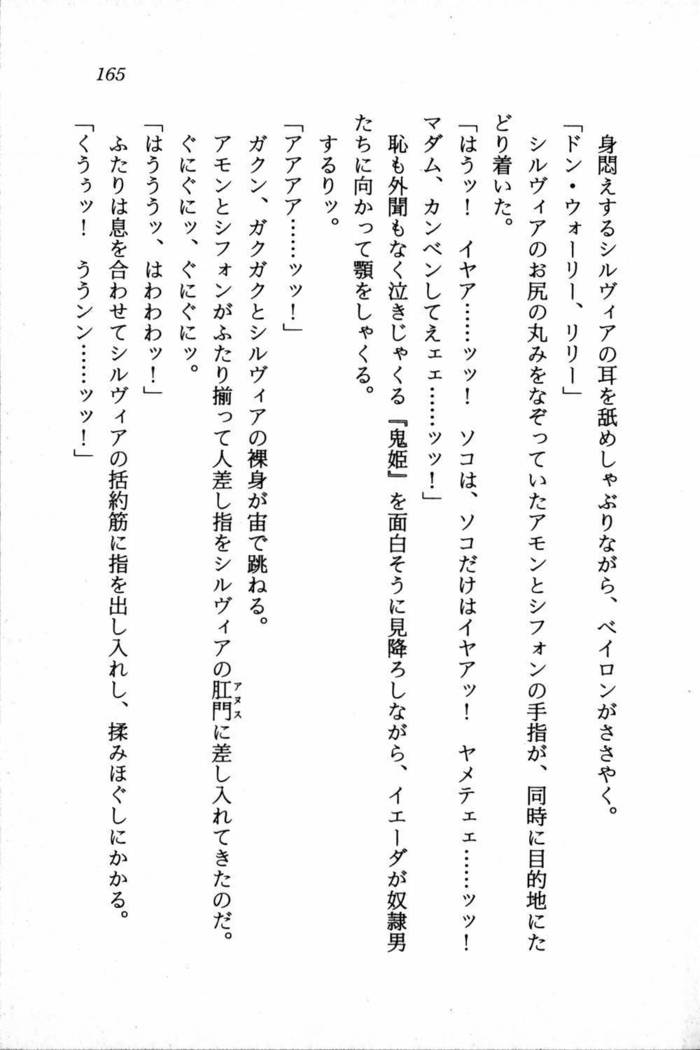 165
身悶えするシルヴィアの耳を舐めしゃぶりながら、ベイロンがささやく。
「ドン・ウォーリー、リリー」
シルヴィアのお尻の丸みをなぞっていたアモンとシフォンの手指が、同時に目的地にた
どり着いた。
「はうッ！　イヤア……ッッ！　ソコは、ソコだけはイヤアッ！　ヤメテェェ……ッッ！
マダム、カンベンしてえェェ……ッッ！」
恥も外聞もなく泣きじゃくる『鬼姫』を面白そうに見降ろしながら、イエーダが奴隷男
たちに向かって顎をしゃくる。
するりッ。
「アアアア……ッッ！」
ガクン、ガクガクとシルヴィアの裸身が宙で跳ねる。
アモンとシフォンがふたり揃って人差し指をシルヴィアの肛門アヌスに差し入れてきたのだ。
ぐにぐにッ、ぐにぐにッ。
「はうううッ、はわわわッ！」
ふたりは息を合わせてシルヴィアの括約筋に指を出し入れし、揉みほぐしにかかる。
「くうぅッ！　ううンン……ッッ！」